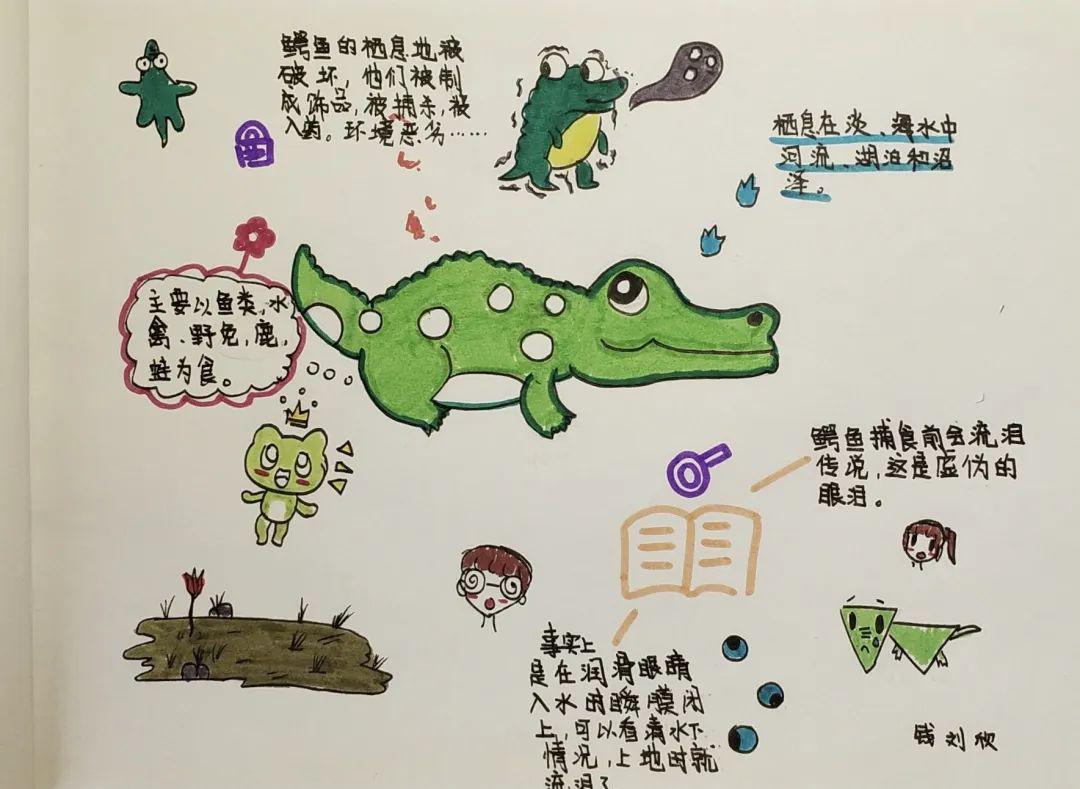 鳄鱼的栖息地被
破坏，他们被制
成饰品，被捕杀，被
入药。环境恶劣……
栖息在淡、海水中
河流、湖泊和沼
泽。
主要以鱼类，水
禽、野兔，鹿，
蛙为食。
鳄鱼捕食前会流泪
传说，这是虚伪的
眼泪。
事实上
是在润滑眼睛
入水时瞬膜闭
上，可以看清水下
情况，上地时就
流泪了
钱刘欣